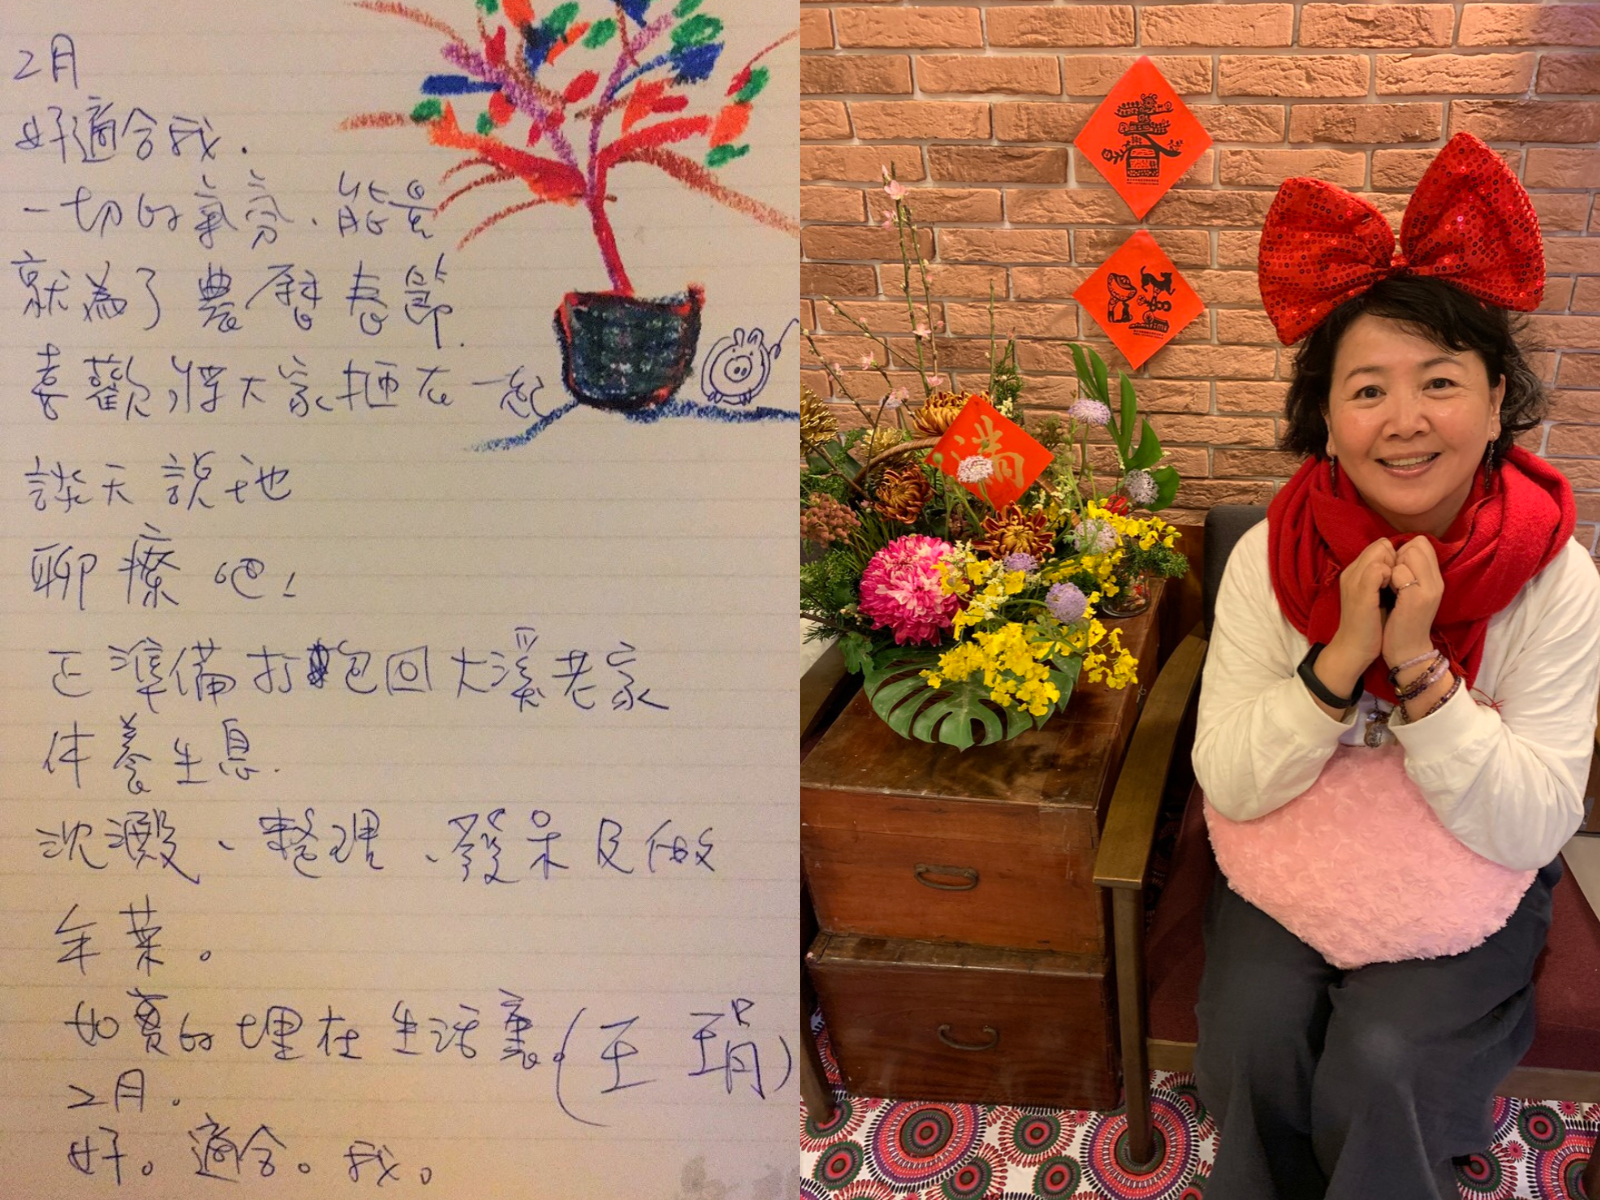 2月
好適合我.
一切的氣氛、能量
就為了農曆春節.
喜歡將大家揪在一起
談天說地
聊療吧!
正準備打包回大溪老家
休養生息.
沈澱、整理、發呆及做
年菜。
如實的埋在生活裏。(王琄)
2月.
好。適合。我。
春
滿